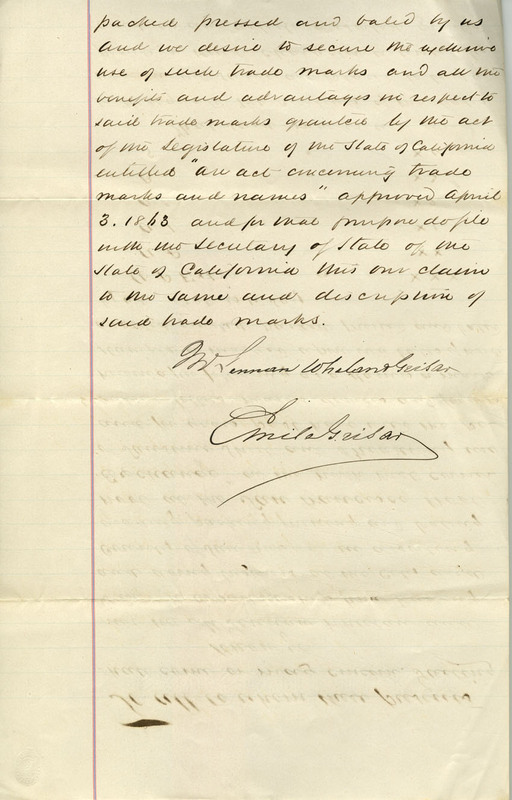 packed pressed and baled by us
and we desire to secure the exclusive
use of such trade marks and all the
benefits and advantages in respect to
said trade marks granted by the act
of the Legislature of the State of California
entitled "an act concerning trade
marks and names" approved April
3. 1863 and for that purpose do file
with the Secretary of State of the
State of California this our claim
to the same and description of
said trade marks.
McLennan Whelan & Grisar
Emile Grisar